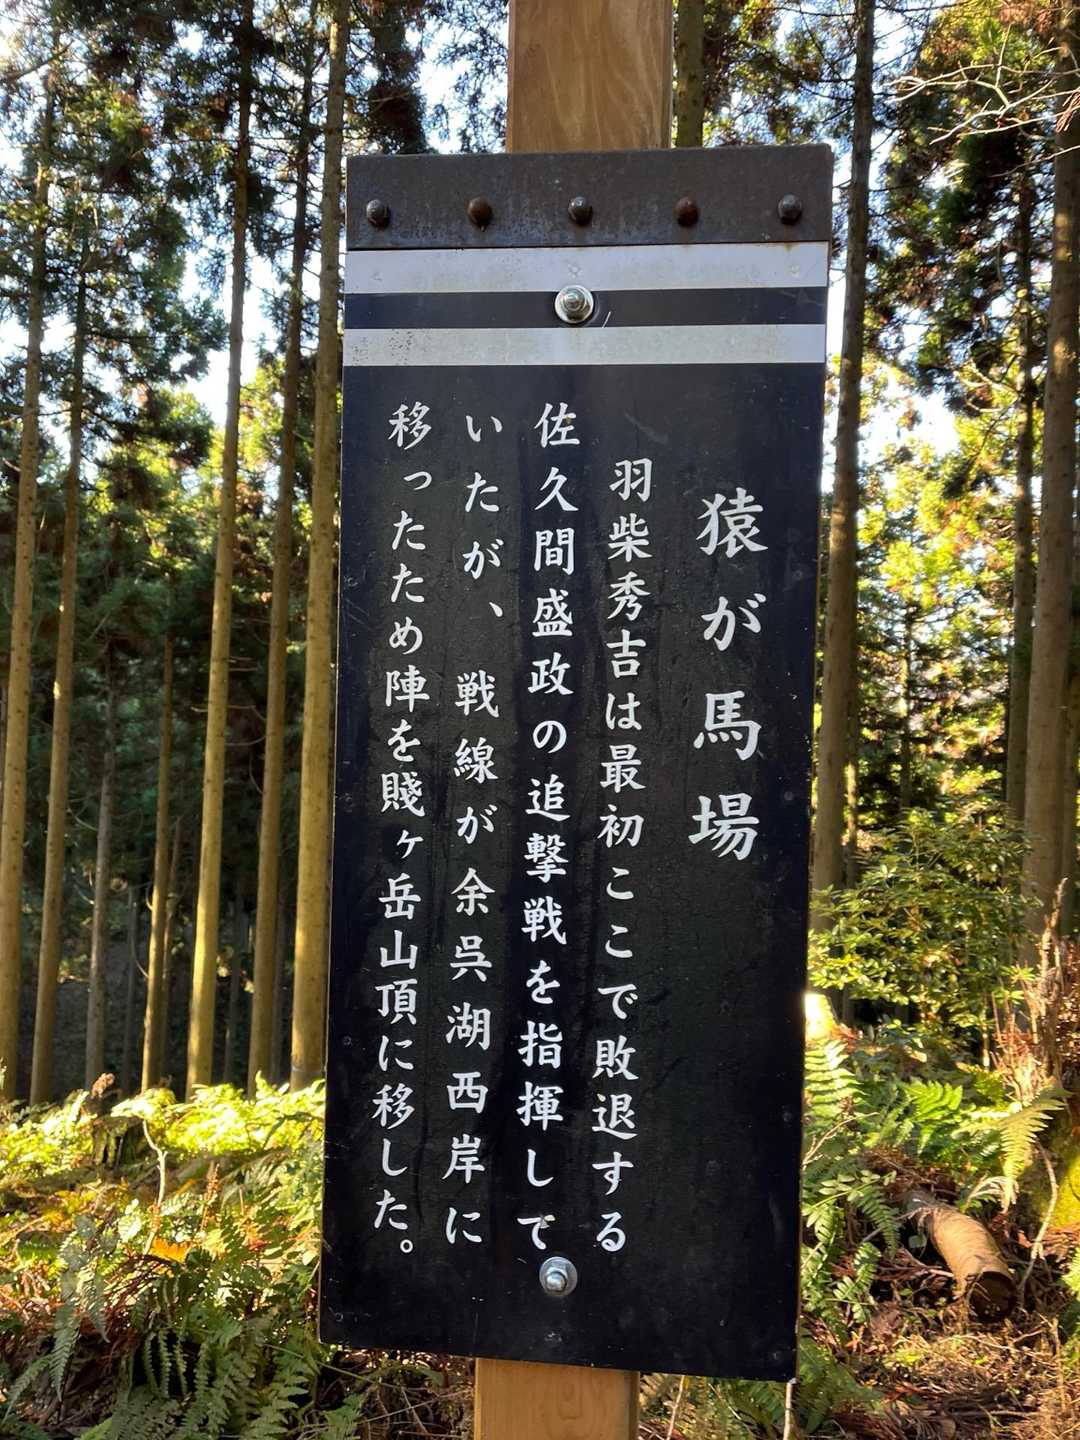 猿が馬場
羽柴秀吉は最初ここで敗退する
佐久間盛政の追撃戦を指揮して
いたが、戦線が余呉湖西岸に
移ったため陣を賤ヶ岳山頂に移した。